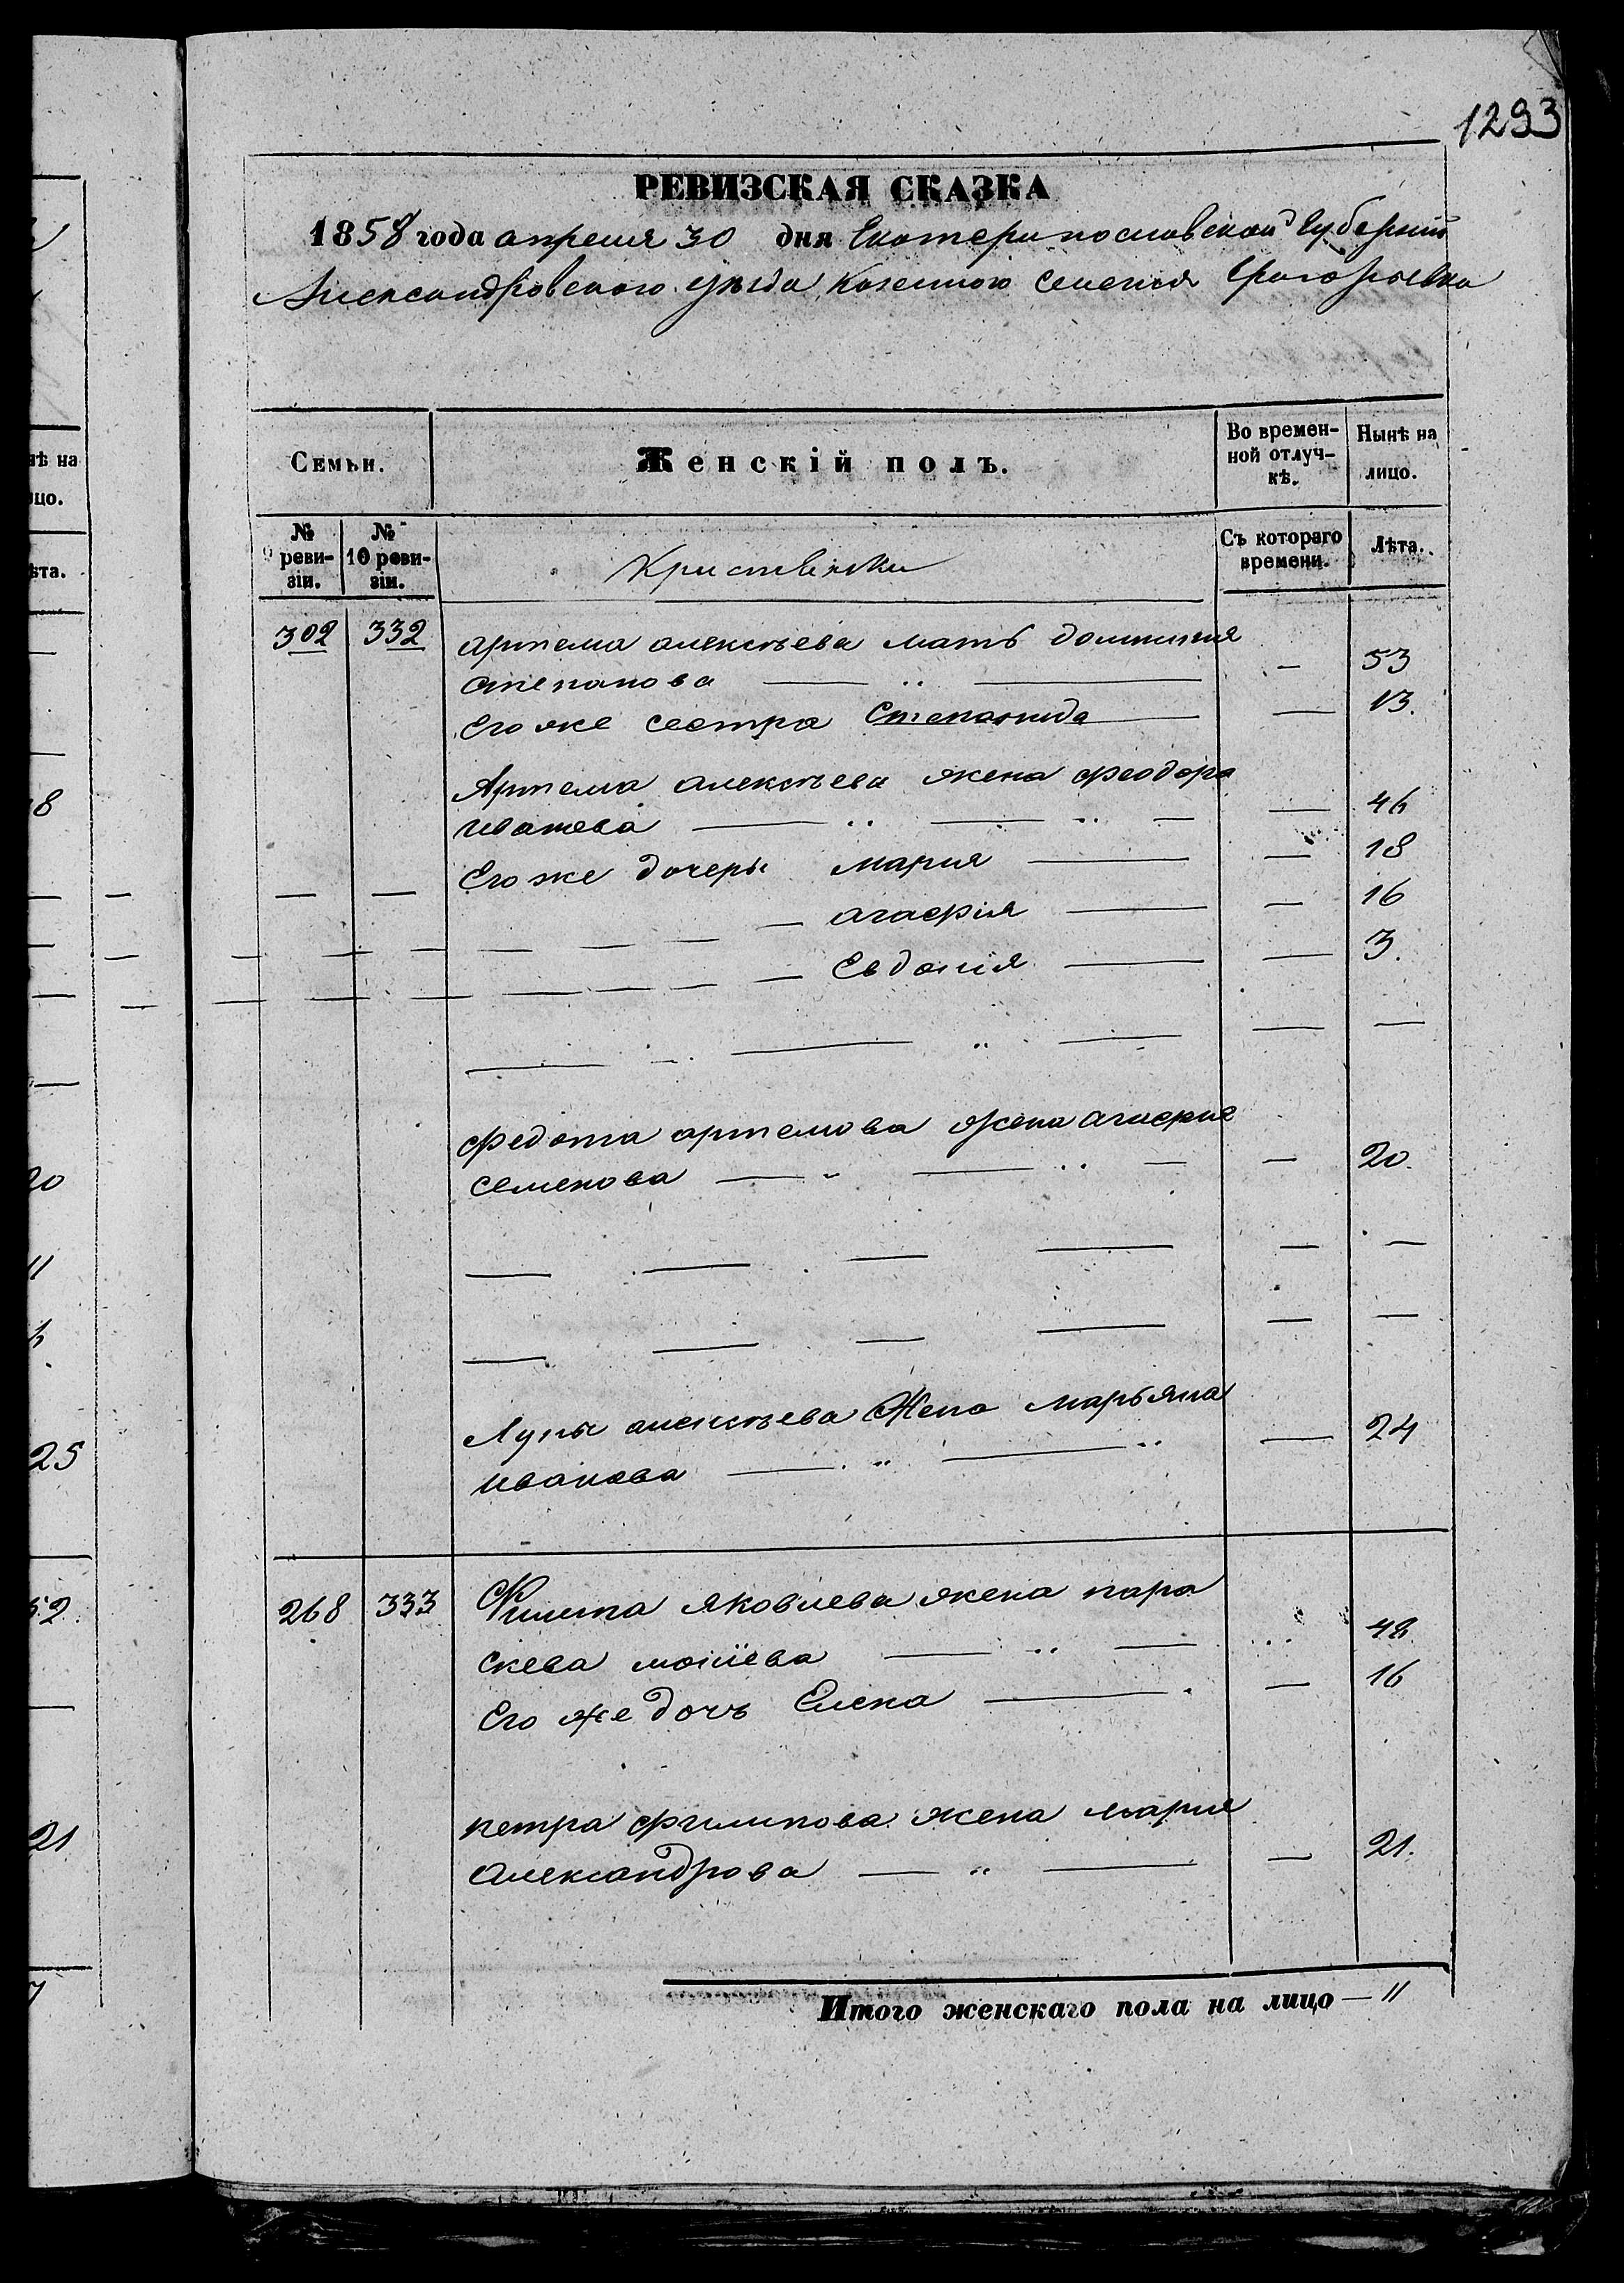 1293
РЕВИЗСКАЯ СКАЗКА
1858 года апреля 30 дня Екатеринославской Губернии
Александровского уезда казенного селения Григорьевка
Семьи.
Женскій полъ.
Во времен-
ной отлуч-
кѣ.
Нынѣ на
лицо.
№
9 реви-
зіи.
№
10 реви-
зіи.
Съ котораго
времени.
Лѣта.
302 332 артема алексѣева мать домникия
степанова — „ — — 53
его же сестра Степанида — — 13.
Артема алексѣева жена феодора
иванова — „ — „ — — 46
Его же дочери мария — — 18
агафія — — 16
Евдокія — — 3.
федота артемова жена агафия
семенова — „ — „ — — 20.
Лупы алексѣева Жена марьяна
иванова — „ — „ — 24
268 333 Филипа яковлева жена пара
скева мойсѣева — „ — 48
Его же дочь Елена — — 16
петра филипова жена мария
александрова — „ — — 21.
Итого женскаго пола на лицо — 11
нѣ на
ицо.
ѣта.
8
20
11
25
52
21